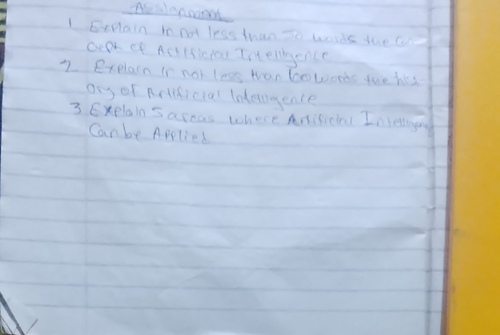 Assignment
1 Explain in not less than 50 words the Con
cept of Artificial Intelligence
2 Explain in not less than words the hist
ory of Artificial Intelligence
3 Explain 5 areas where Artificial Intelligence
Can be Applied